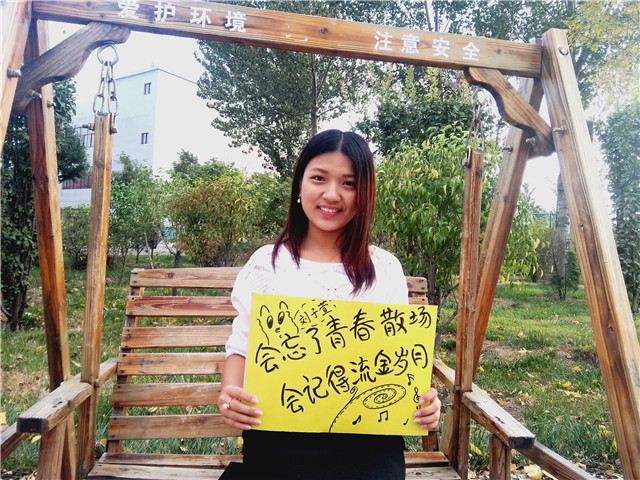 爱护环境 注意安全
刘子萱
会忘了青春散场
会记得流金岁月